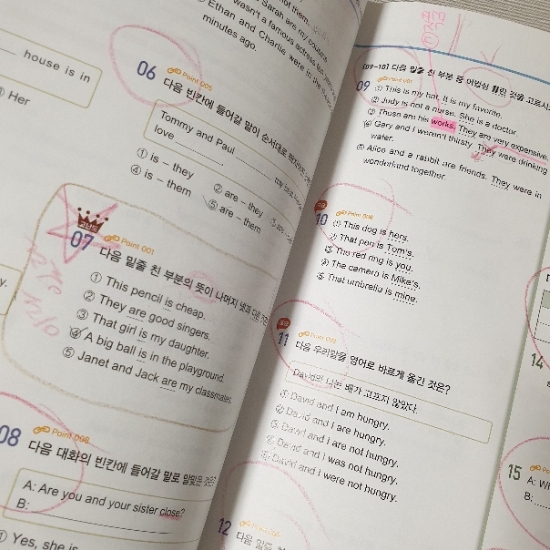 house is in
Her
Sarah are my cousin
wasn't a famous actress last
Ethan and Charlie were in the
minutes ago.
06 Point 005
다음 빈칸에 들어갈 말이 순서대로
Tommy and Paul
love
① is – they
② are – they
④ is – them
⑤ are – them
07 Point 001
다음 밑줄 친 부분의 뜻이 나머지 넷과 다른 것은
① This pencil is cheap.
② They are good singers.
③ That girl is my daughter.
④ A big ball is in the playground.
⑤ Janet and Jack are my classmates.
08 Point 008
다음 대화의 빈칸에 들어갈 말로 알맞은 것은?
A: Are you and your sister close?
B:
① Yes, she is
[09~10] 다음 밑줄 친 부분 중 어법상 틀린 것을 고르시
09
① This is my hat. It is my favorite.
② Judy is not a nurse. She is a doctor.
③ Those are his works. They are very expensive.
④ Gary and I weren't thirsty. They were drinking
water.
⑤ Alice and a rabbit are friends. They were in
wonderland together.
10
① This dog is hers.
② That pen is Tom's.
③ The red ring is you.
④ The camera is Mike's.
⑤ That umbrella is mine.
11
다음 우리말을 영어로 바르게 옮긴 것은?
David와 나는 배가 고프지 않았다.
① David and I am hungry.
② David and I are hungry.
③ David and I are not hungry.
④ David and I was not hungry.
⑤ David and I were not hungry.
12
다음
14
15
A:
B: